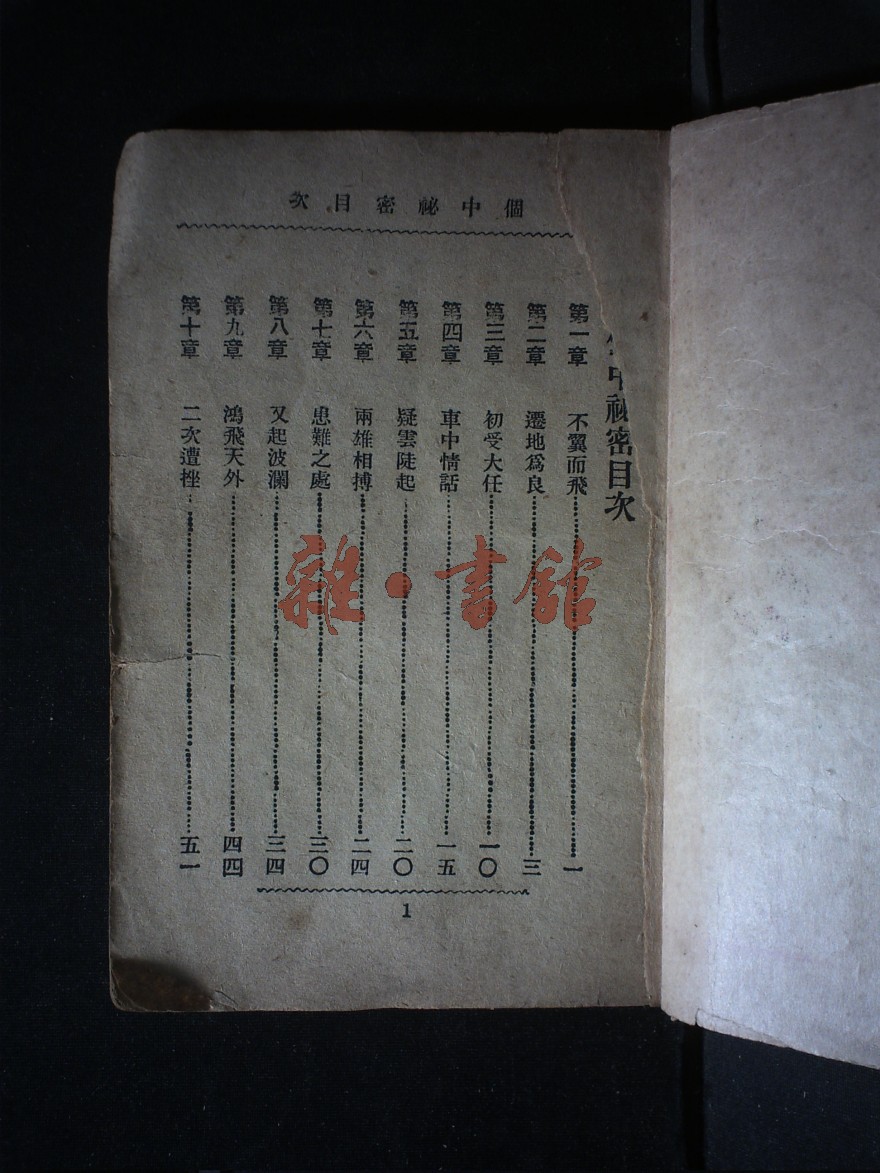 個中祕密目次
中祕密目次
第一章 不翼而飛 一
第二章 遷地爲良 三
第三章 初受大任 一〇
第四章 車中情話 一五
第五章 疑雲陡起 二〇
第六章 兩雄相搏 二四
第七章 患難之處 三〇
第八章 又起波瀾 三四
第九章 鴻飛天外 四四
第十章 二次遭挫 五一
1
雜·書館